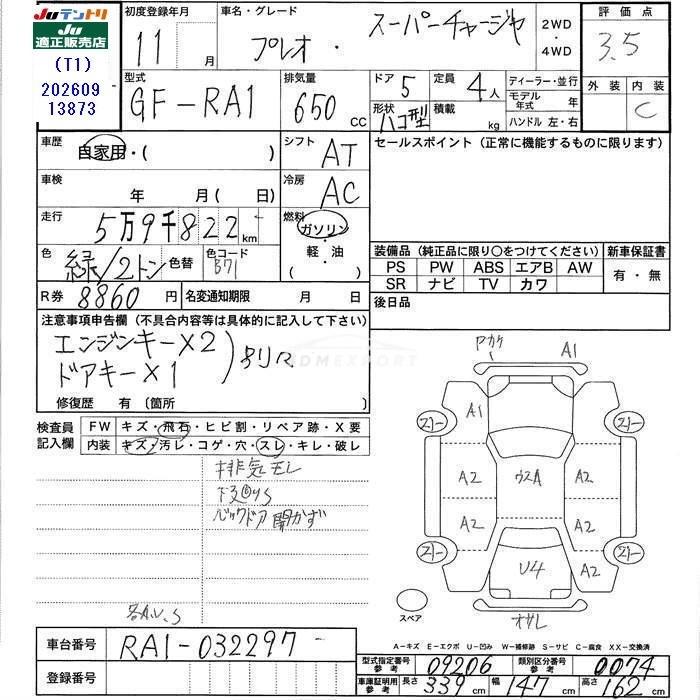 Juテントリ
Ju
適正販売店
(T1)
202609
13873
初度登録年月
11月
車名・グレード
プレオ・スーパーチャージャ
2WD
・
4WD
評価点
3.5
外装 内装
C
型式
GF-RA1
排気量
650 CC
ドア 5
定員 4人
形状 ハコ型
積載 kg
ディーラー・並行
モデル年式 年
ハンドル 左・右
車歴
自家用・( )
シフト AT
セールスポイント (正常に機能するものに限ります)
車検
年 月( 日)
冷房 AC
走行
5万9千822km
燃料
ガソリン
・
軽・油
( )
色
緑/2トン
色替
色コード
B71
装備品 (純正品に限り○をつけてください)
新車保証書
PS PW ABS エアB AW
有・無
SR ナビ TV カワ
R券 8860円
名変通知期限 月 日
後日品
注意事項申告欄 (不具合内容等は具体的に記入して下さい)
エンジンキー×2
ドアキー×1
修復歴 有 〔箇所 〕
JDMEXPORT
検査員
記入欄
FW キズ・飛石・ヒビ割・リペア跡・X要
内装 キズ・汚レ・コゲ・穴・スレ・キレ・破レ
排気モレ
バックドア開かず
A1
A1
A2 ウスA A2
A2 A2
U4 A2
スペア
A-キズ E-エクボ U-凹み W-補修跡 S-サビ C-腐食 XX-交換済
車台番号 RA1-032297
登録番号
型式指定番号
参考
09206
類別区分番号
参考
0074
車庫証明用
参考
長さ 339 cm 幅 147 cm 高さ 162 cm